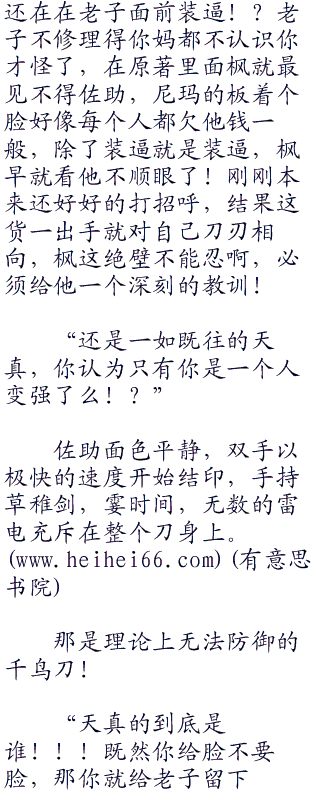 还在在老子面前装逼！？老
子不修理得你妈都不认识你
才怪了，在原著里面枫就最
见不得佐助，尼玛的板着个
脸好像每个人都欠他钱一
般，除了装逼就是装逼，枫
早就看他不顺眼了！刚刚本
来还好好的打招呼，结果这
货一出手就对自己刀刃相
向，枫这绝壁不能忍啊，必
须给他一个深刻的教训！
“还是一如既往的天
真，你认为只有你是一个人
变强了么！？”
佐助面色平静，双手以
极快的速度开始结印，手持
草稚剑，霎时间，无数的雷
电充斥在整个刀身上。
(www.heihei66.com)(有意思
书院)
那是理论上无法防御的
千鸟刀！
“天真的到底是
谁！！！既然你给脸不要
脸，那你就给老子留下